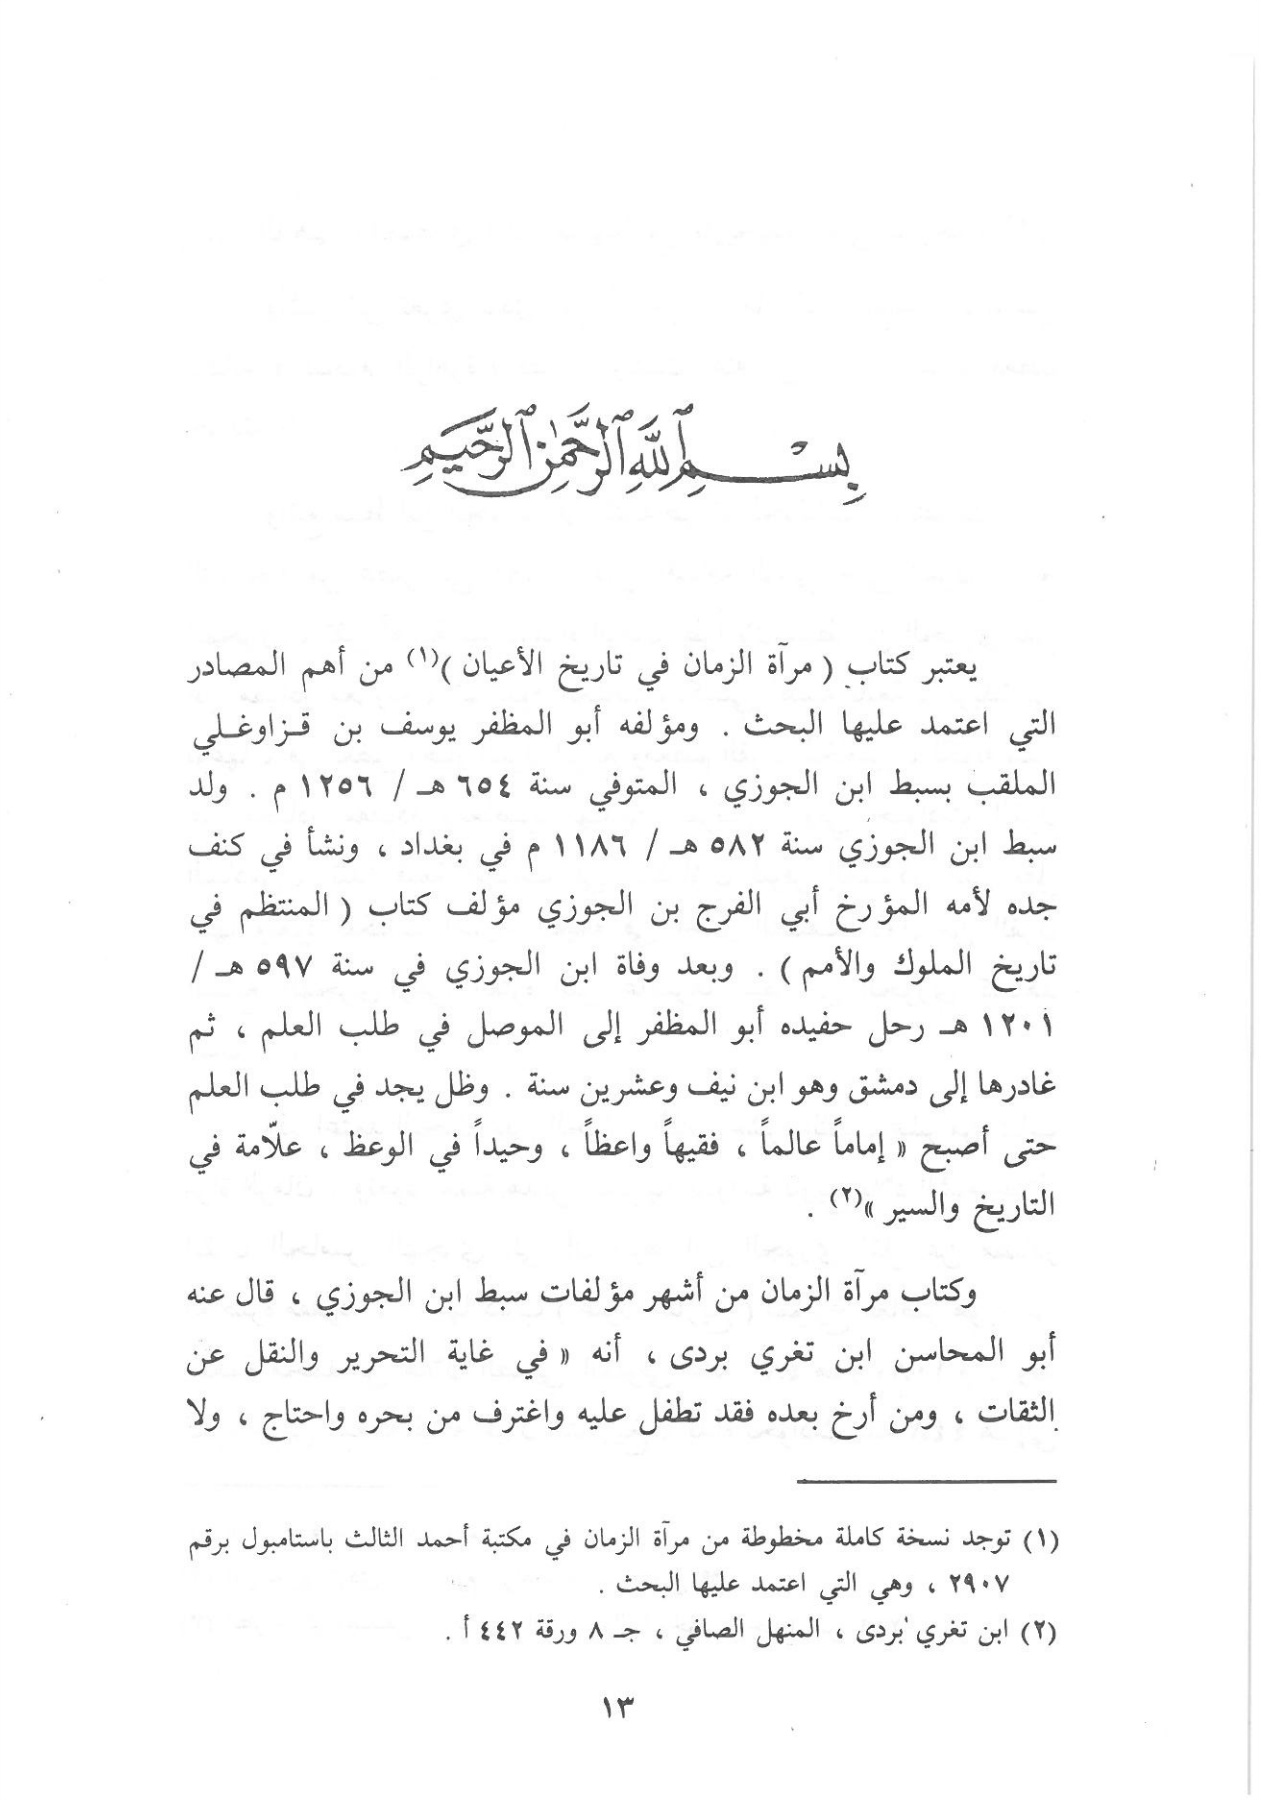 بسم الله الرحمن الرحيم
يعتبر كتاب ( مرآة الزمان في تاريخ الأعيان )(١) من أهم المصادر
التي اعتمد عليها البحث . ومؤلفه أبو المظفر يوسف بن قزاوغلي
الملقب بسبط ابن الجوزي ، المتوفي سنة ٦٥٤ هـ / ١٢٥٦ م . ولد
سبط ابن الجوزي سنة ٥٨٢ هـ / ١١٨٦ م في بغداد ، ونشأ في كنف
جده لأمه المؤرخ أبي الفرج بن الجوزي مؤلف كتاب ( المنتظم في
تاريخ الملوك والأمم ) . وبعد وفاة ابن الجوزي في سنة ٥٩٧ هـ /
١٢٠١ هـ رحل حفيده أبو المظفر إلى الموصل في طلب العلم ، ثم
غادرها إلى دمشق وهو ابن نيف وعشرين سنة . وظل يجد في طلب العلم
حتى أصبح « إماماً عالماً ، فقيهاً واعظاً ، وحيداً في الوعظ ، علّامة في
التاريخ والسير »(٢) .
وكتاب مرآة الزمان من أشهر مؤلفات سبط ابن الجوزي ، قال عنه
أبو المحاسن ابن تغري بردى ، أنه « في غاية التحرير والنقل عن
الثقات ، ومن أرخ بعده فقد تطفل عليه واغترف من بحره واحتاج ، ولا
(١) توجد نسخة كاملة مخطوطة من مرآة الزمان في مكتبة أحمد الثالث باستامبول برقم
٢٩٠٧ ، وهي التي اعتمد عليها البحث .
(٢) ابن تغري بردى ، المنهل الصافي ، جـ ٨ ورقة ٤٤٢ أ .
١٣